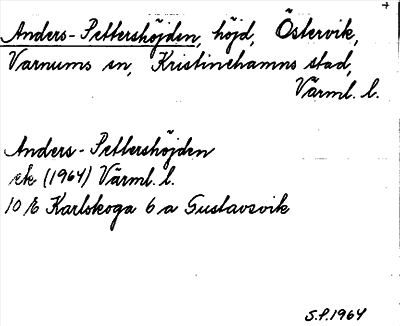 Anders-Pettershöjden, höjd, Östervik,
Varnums sn, Kristinehamns stad,
Värml. l.
Anders-Pettershöjden
ek (1964) Värml. l.
10 E Karlskoga 6 a Gustavsvik
S.P. 1964